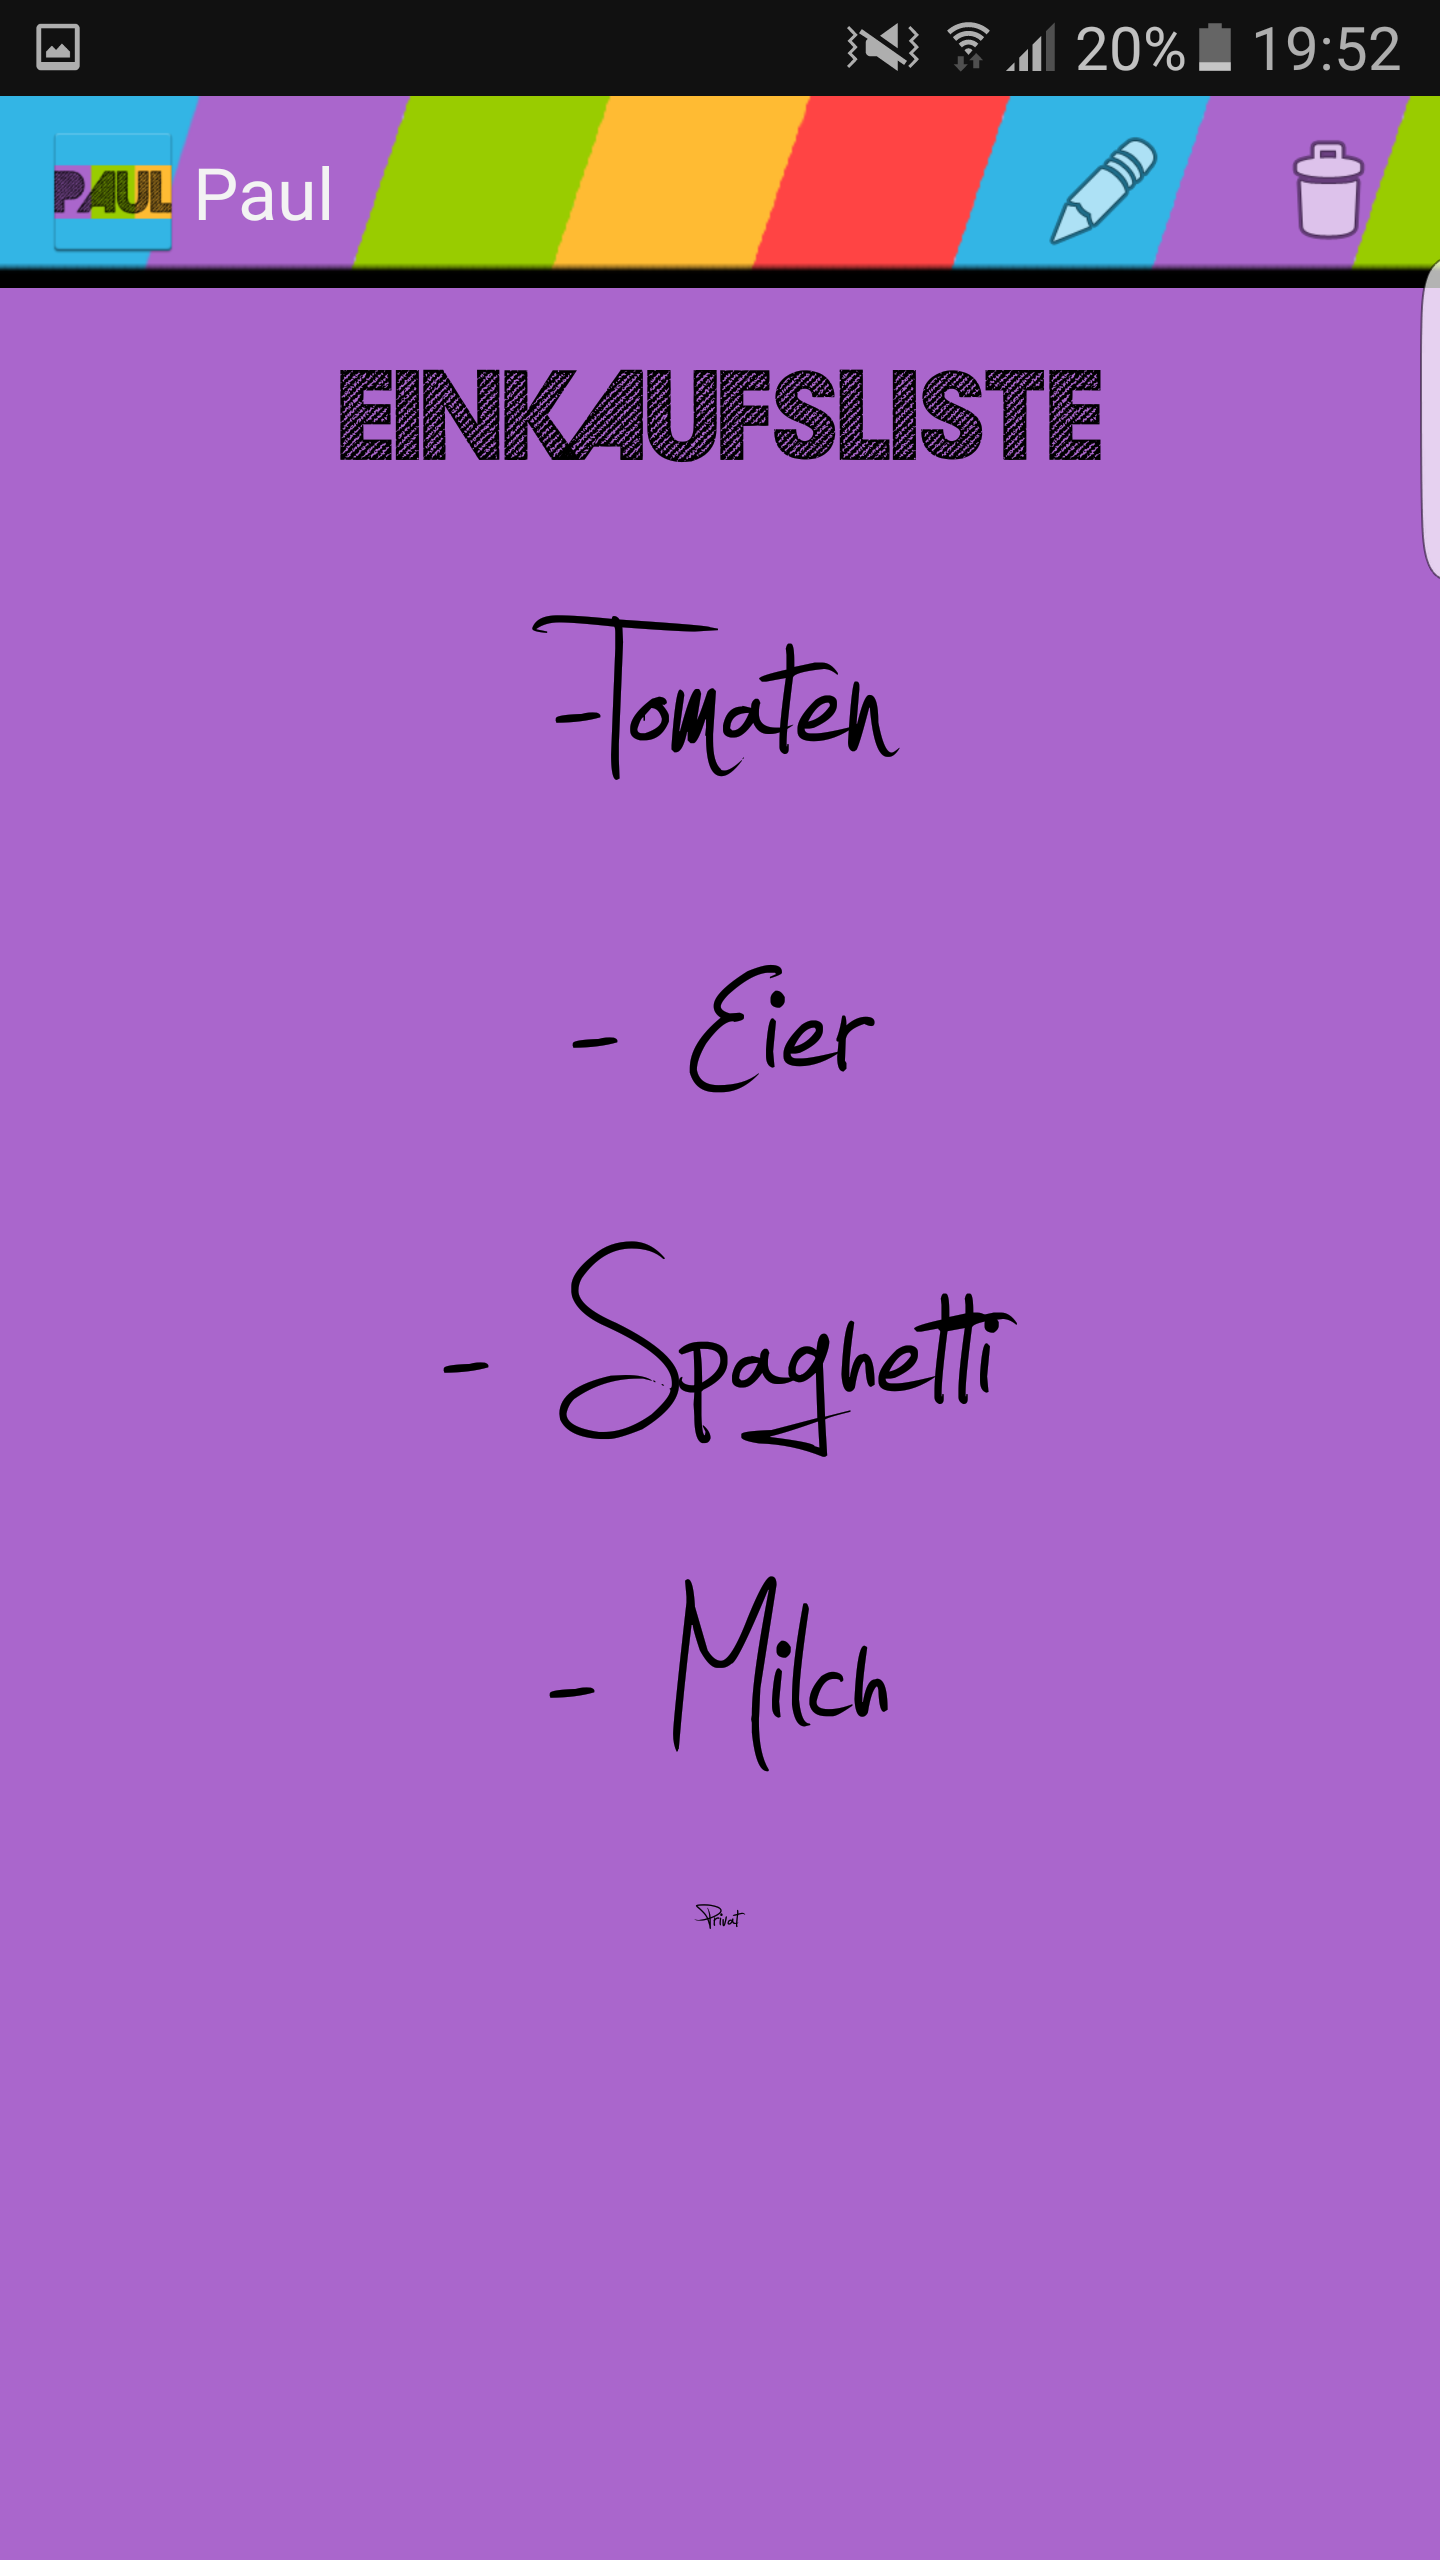 20% 19:52
PAUL Paul
EINKAUFSLISTE
-Tomaten
- Eier
- Spaghetti
- Milch
Privat